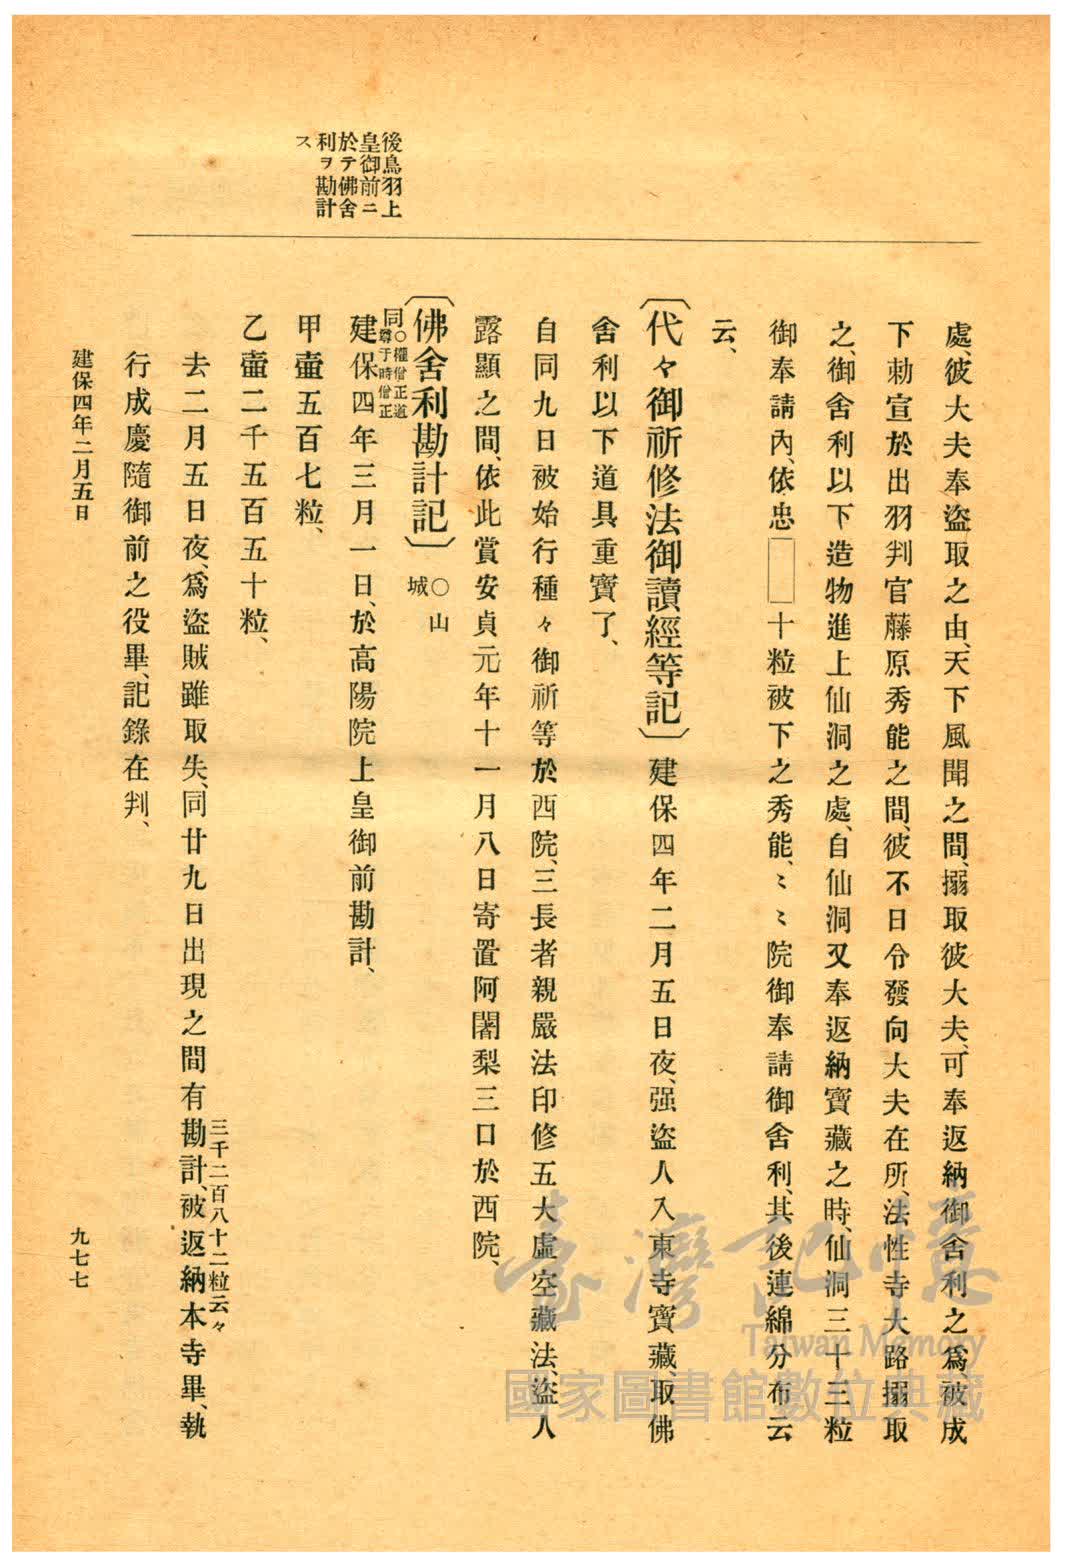 後鳥羽上
皇御前ニ
於テ佛舍
利ヲ勘計
ス
處、彼大夫奉盜取之由、天下風聞之間、搦取彼大夫、可奉返納御舍利之爲被成
下勅宣於出羽判官藤原秀能之間、彼不日令發向大夫在所、法性寺大路搦取
之、御舍利以下造物進上仙洞之處、自仙洞又奉返納寶藏之時、仙洞三十三粒
御奉請內、依忠□十粒被下之秀能、〻〻院御奉請御舍利、其後連綿分布云
云、
〔代々御祈修法御讀經等記〕建保四年二月五日夜、强盜人入東寺寶藏、取佛
舍利以下道具重寶了、
自同九日被始行種々御祈等於西院、三長者親嚴法印修五大虛空藏法、盜人
露顯之間、依此賞安貞元年十一月八日寄置阿闍梨三口於西院、
〔佛舍利勘計記〕○山城
同○權僧正道尊于時僧正
建保四年三月一日、於高陽院上皇御前勘計、
甲壺五百七粒、
乙壺二千五百五十粒、
三千二百八十二粒云々
去二月五日夜、爲盜賊雖取失、同廿九日出現之間有勘計、被返納本寺畢、執
行成慶隨御前之役畢、記錄在判、
建保四年二月五日
九七七
臺灣記憶
Taiwan Memory
國家圖書館數位典藏